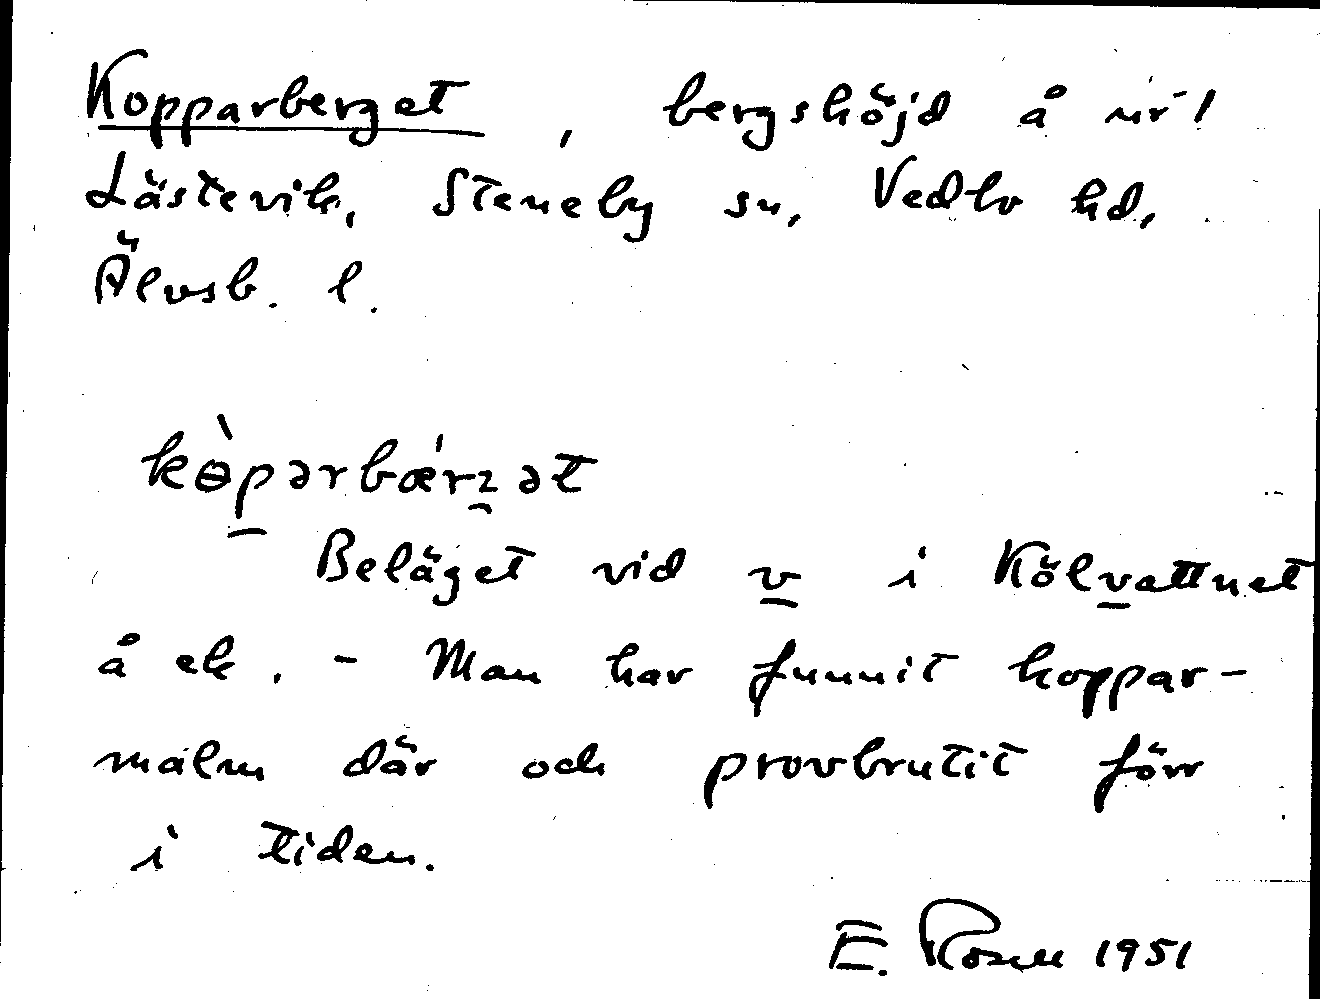 Kopparberget, bergshöjd å nr 1
Lästevik, Steneby sn, Vedbo hd,
Älvsb. l.
kòparbǽrɀət
Beläget vid v i Kölvattnet
å ek. - Man har funnit koppar-
malm där och provbrutit förr
i tiden.
E. Rosell 1951